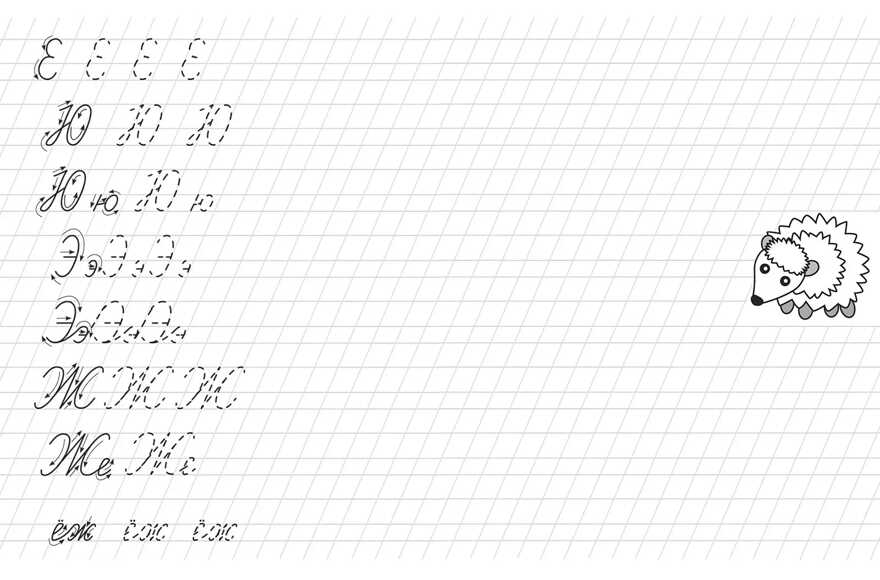 Е Е Е Е
Ю Ю Ю
Ю ю Ю ю
Э э Э э Э э
Ээ Ээ Ээ
Ж Ж Ж
Же Же
ёж ёж ёж